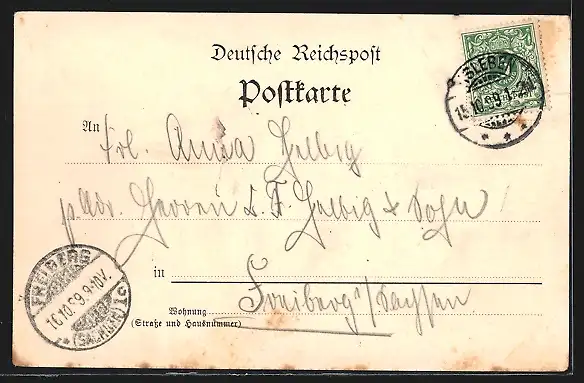 Deutsche Reichspost
Postkarte
SIEBEN
15.10.99.1
An Frl. Anna Helbig
p. Adr. Herren L. F. Helbig & Sohn
in Freiberg/Sachsen
FREIBERG
16.10.99.9-10V.
(SACHSEN) 1c
Wohnung
(Straße und Hausnummer)